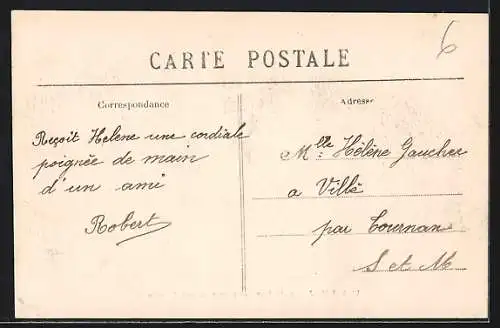 6
CARTE POSTALE
Correspondance
Adresse
Reçoit Helene une cordiale
poignée de main
d'un ami
Robert
Mlle Hélène Gaucher
a Villé
par Tournan
S et M